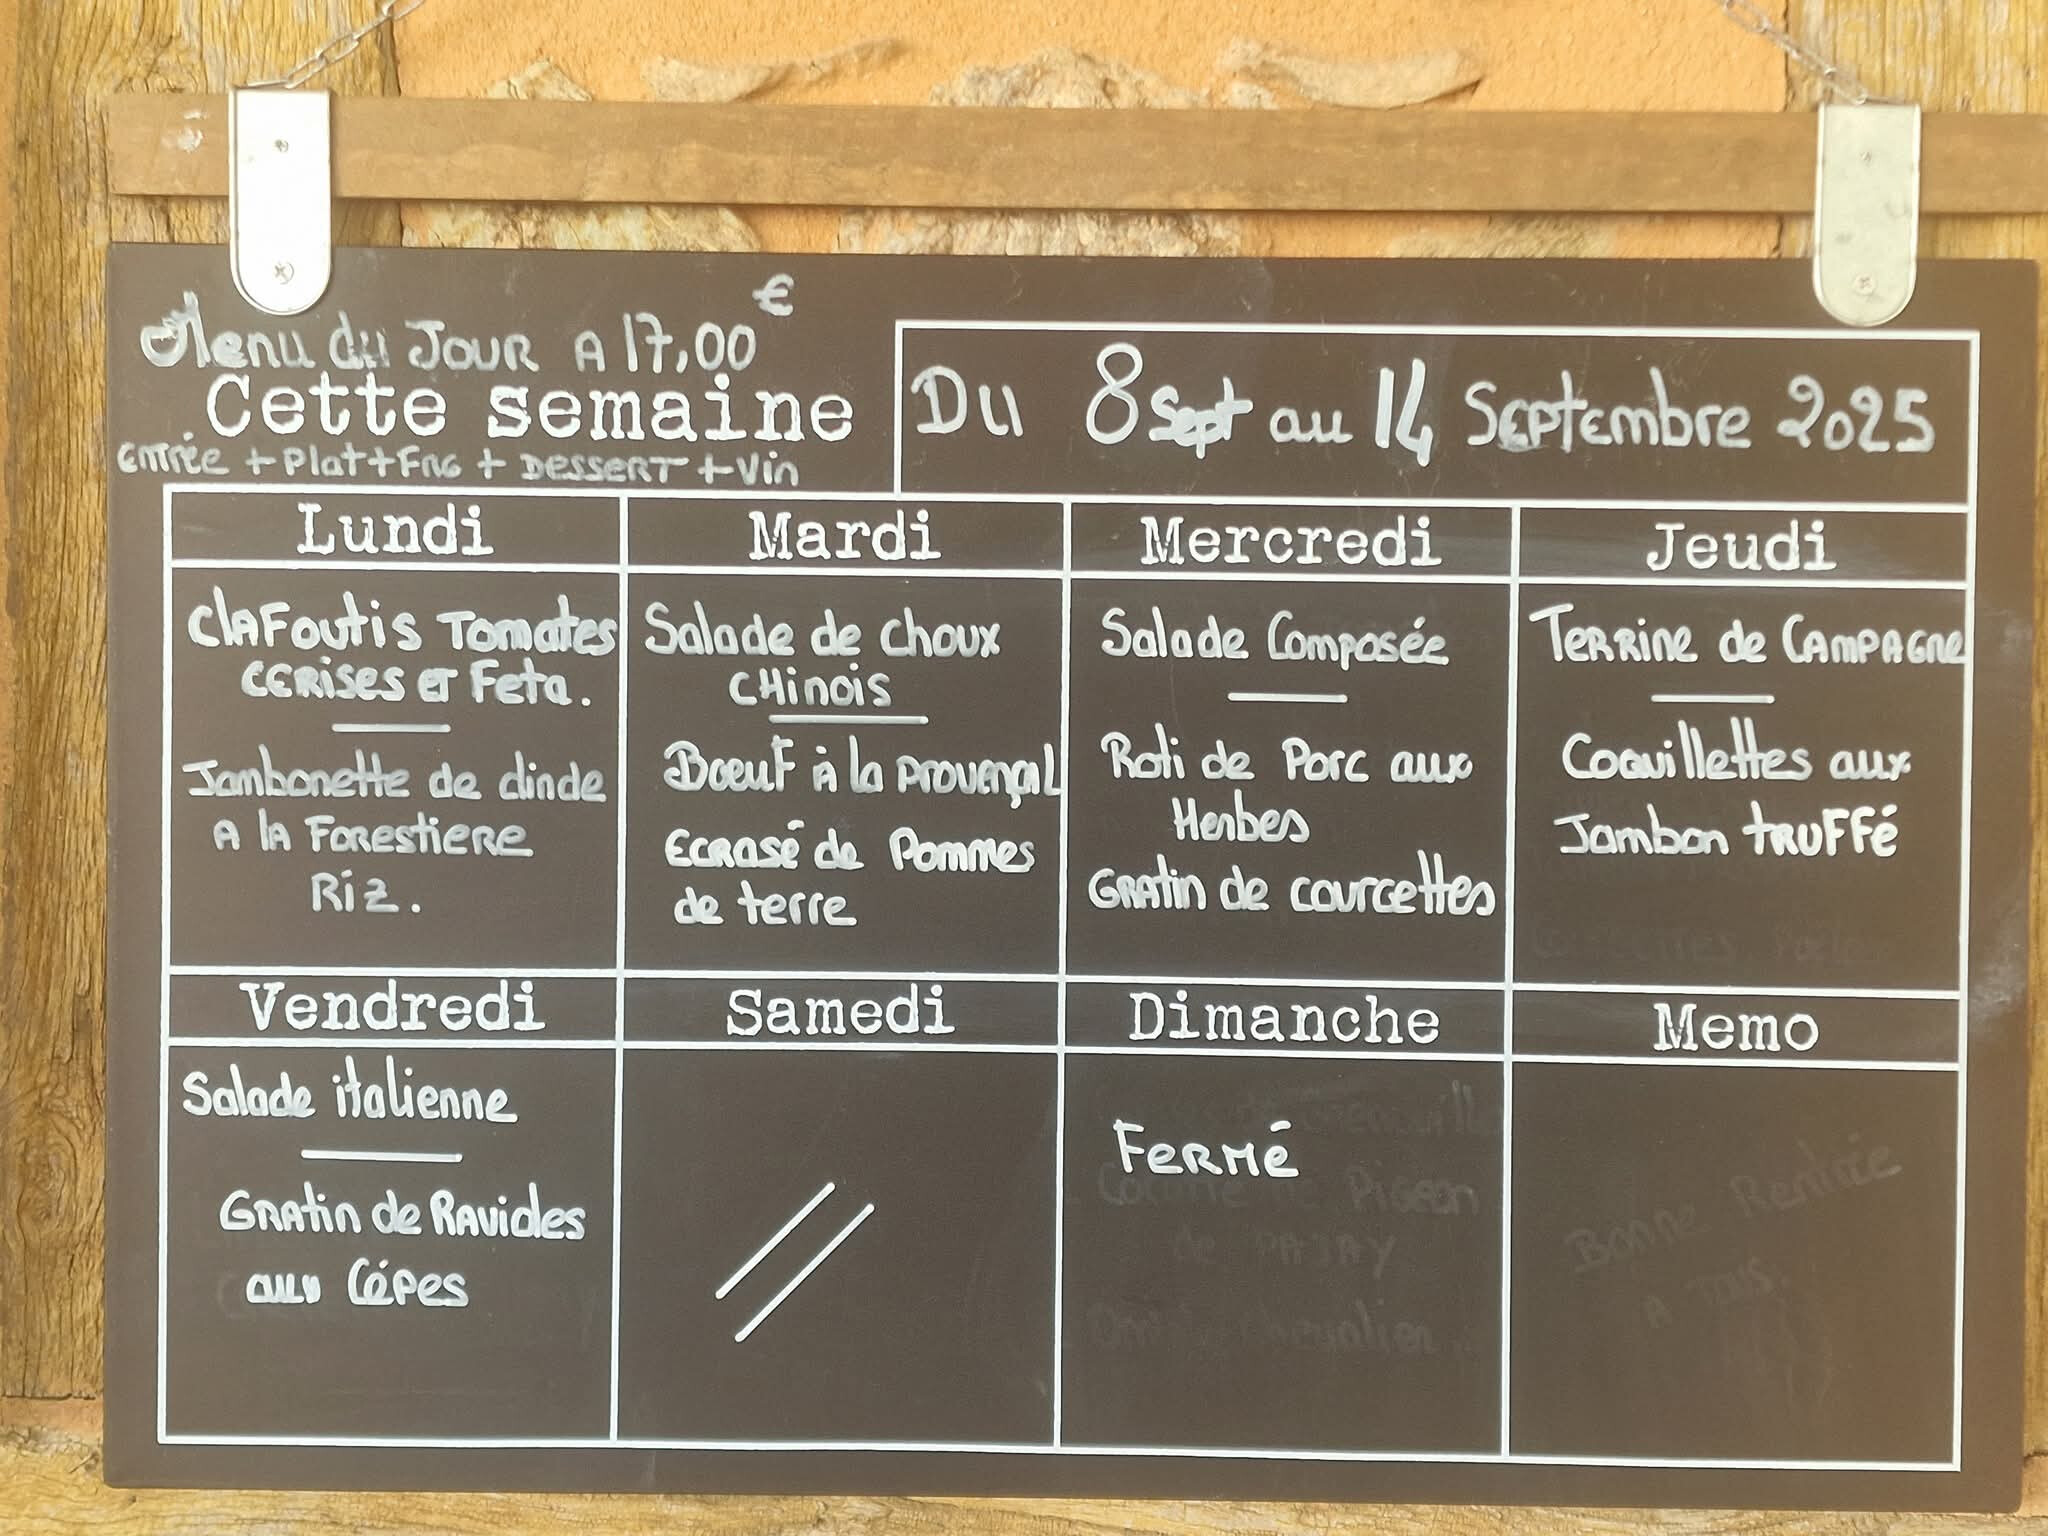 Menu du Jour A 17,00€
Cette semaine
Entrée + Plat + Frg + Dessert + Vin
Du 8 Sept au 14 Septembre 2025
Lundi
Clafoutis Tomates
Cerises et Feta.
Jambonette de dinde
A la Forestiere
Riz.
Mardi
Salade de choux
Chinois
Bœuf à la provençal
Ecrasé de Pommes
de terre
Mercredi
Salade Composée
Roti de Porc aux
Herbes
Gratin de courgettes
Jeudi
Terrine de Campagne
Coquillettes aux
Jambon truffé
Vendredi
Salade italienne
Gratin de Ravioles
aux Cépes
Samedi
//
Dimanche
Fermé
Pigeon
de PAJAY
Memo
Bonne Rentrée
A tous.